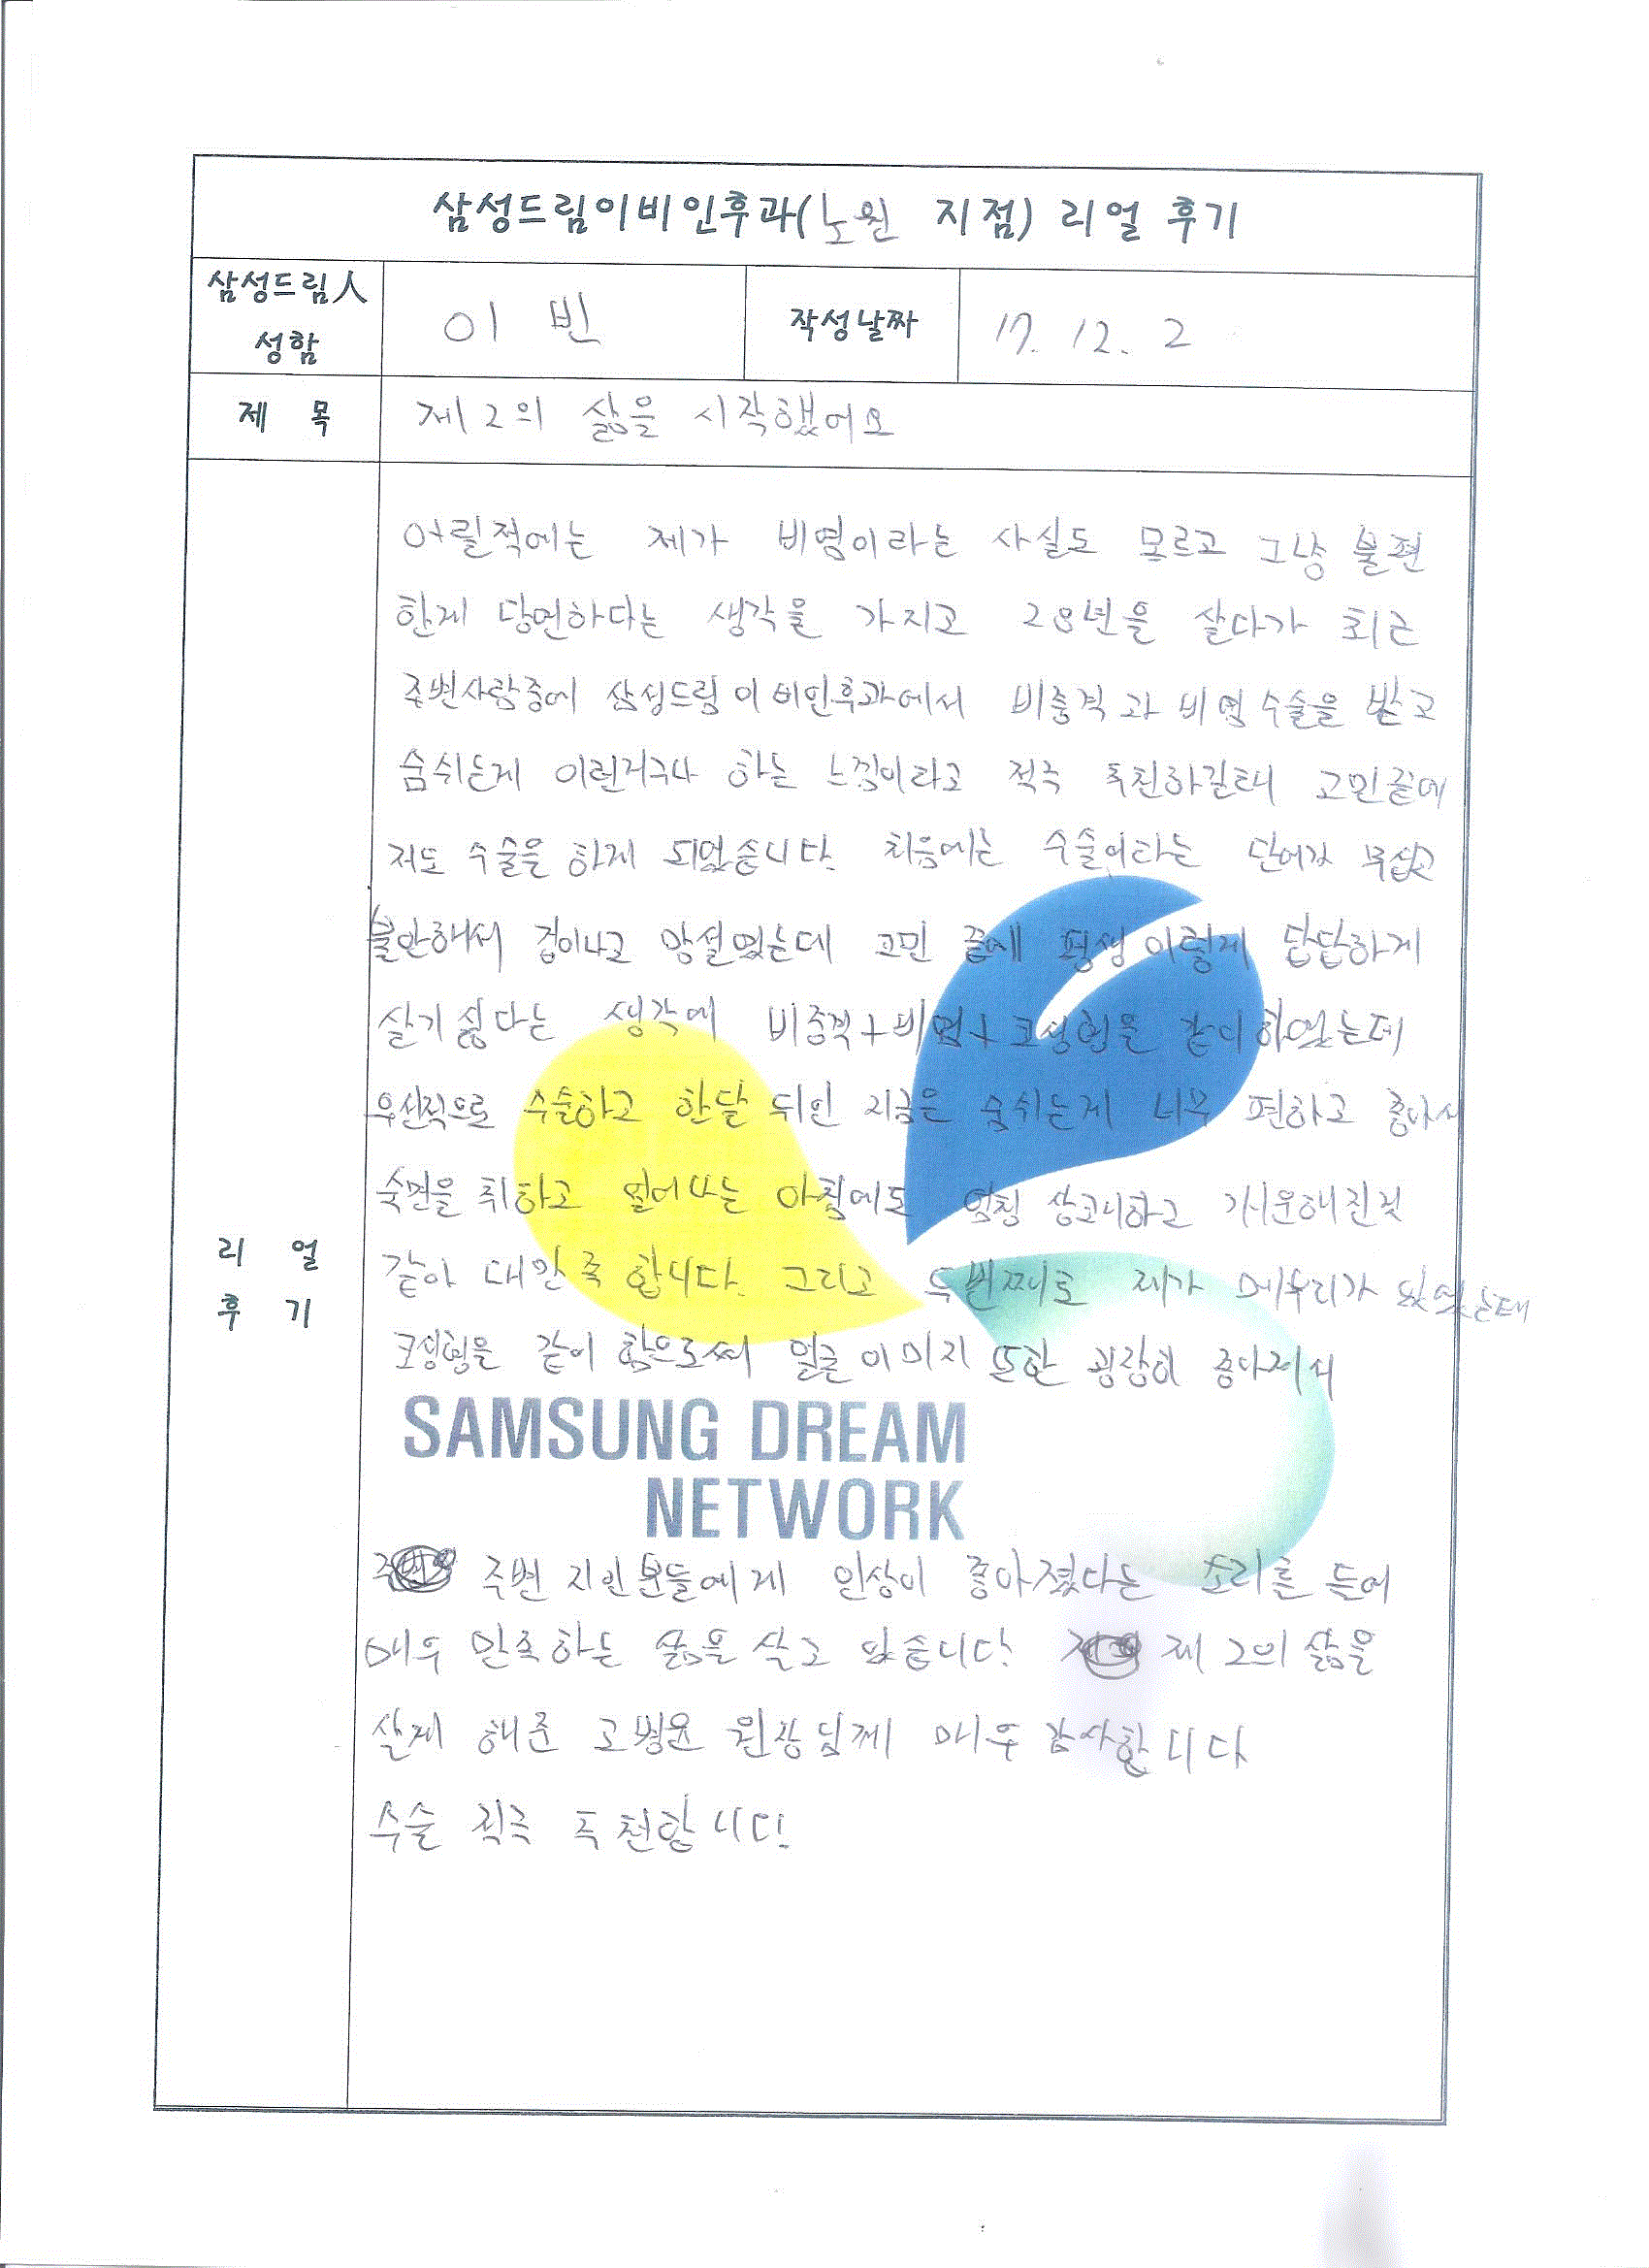 삼성드림이비인후과(노원 지점) 리얼 후기
삼성드림人 성함
이 빈
작성날짜
17. 12. 2
제 목
제2의 삶을 시작했어요
리 얼 후 기
어릴적에는 제가 비염이라는 사실도 모르고 그냥 불편
한게 당연하다는 생각을 가지고 28년을 살다가 최근
주변사람중에 삼성드림이비인후과에서 비중격과 비염수술을 받고
숨쉬는게 이런거구나 하는 느낌이라고 적극 추천하길래 고민끝에
저도 수술을 하게 되었습니다. 처음에는 수술이라는 단어가 무섭고
불안해서 겁이나고 망설였는데 고민 끝에 평생 이렇게 답답하게
살기싫다는 생각에 비중격+비염+코성형을 같이 하였는데
우선적으로 수술하고 한달 뒤인 지금은 숨쉬는게 너무 편하고 좋아서
숙면을 취하고 일어나는 아침에도 엄청 상쾌하고 개운해진것
같아 대만족 합니다. 그리고 두번째로 제가 메부리가 있었는데
코성형을 같이 함으로써 얼굴이미지 또한 굉장히 좋아져서
SAMSUNG DREAM
NETWORK
주변 지인분들에게 인상이 좋아졌다는 소리를 들어
매우 만족하는 삶을 살고 있습니다. 제2의 삶을
살게 해준 고병윤 원장님께 매우 감사합니다
수술 적극 추천합니다!